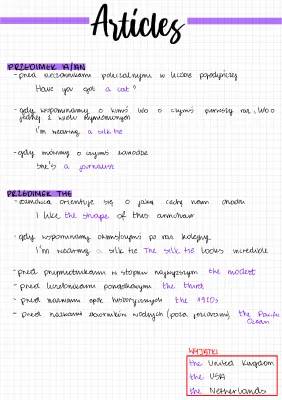 Articles
PRZEDIMEK A/AN
- przed rzeczownikami policzalnymi w liczbie pojedynczej
Have you got a cat?
- gdy wspominamy o kimś lub o czymś pierwszy raz, lub o
jednej z wielu wymienionych
I'm wearing a silk tie
- gdy mówimy o czyimś zawodzie
She's a journalist
PRZEDIMEK THE
- rozmówca orientuje się o jaką cechę nam chodzi
I like the shape of this armchair
- gdy wspominamy o kimś/czymś po raz kolejny
I'm wearing a silk tie The silk tie looks incredible
- przed przymiotnikami w stopniu najwyższym the modest
- przed liczebnikami porządkowymi the third
- przed nazwami epok historycznych the 1920s
- przed nazwami zbiorników wodnych (poza jeziorami) the Pacific
Ocean
WYJĄTKI
the United Kingdom
the USA
the Netherlands